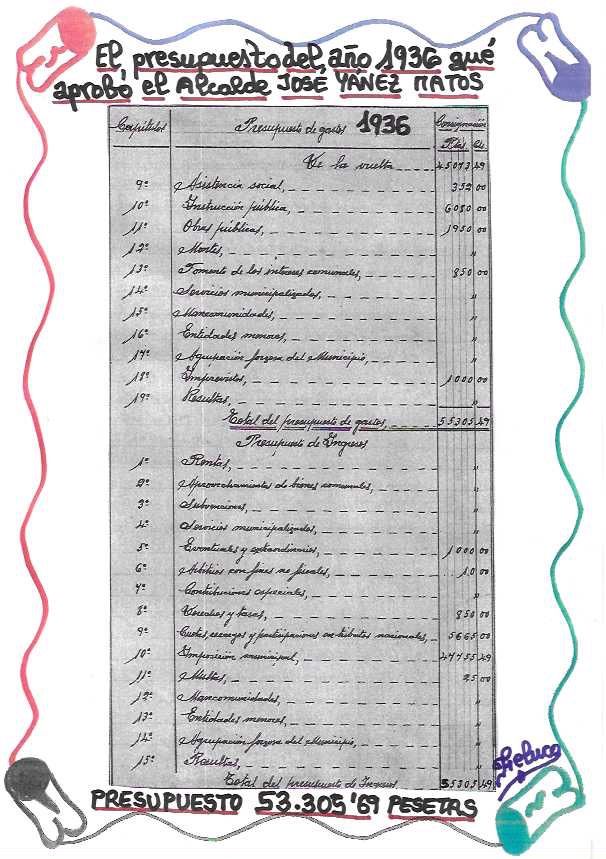 El presupuesto del año 1936 qué
aprobó el Alcalde JOSÉ YANEZ MATOS
Capítulos Presupuesto de gastos 1936 Consignación
Ptas. Cts.
De la vuelta 45073 49
9º Asistencia social, 352 00
10º Instrucción pública, 6080 00
11º Obras públicas, 1950 00
12º Montes, "
13º Fomento de los intereses comunales, 850 00
14º Servicios municipalizados, "
15º Mancomunidades, "
16º Entidades menores, "
17º Agrupación forzosa del Municipio, "
18º Imprevistos, 1000 00
19º Resultas,
Total del presupuesto de gastos, 55305 49
Presupuesto de Ingresos
1º Rentas, "
2º Aprovechamientos de bienes comunales, "
3º Subvenciones, "
4º Servicios municipalizados, "
5º Eventuales y extraordinarios, 1000 00
6º Arbitrios con fines no fiscales, 10 00
7º Contribuciones especiales, "
8º Derechos y tasas, 850 00
9º Cuotas, recargos y participaciones en tributos nacionales, 5665 00
10º Imposición municipal, 47755 49
11º Multas, 25 00
12º Mancomunidades, "
13º Entidades menores, "
14º Agupación forzosa del Municipio, "
15º Resultas, "
Total del presupuesto de Ingresos 55305 49
PRESUPUESTO 53.305'69 PESETAS